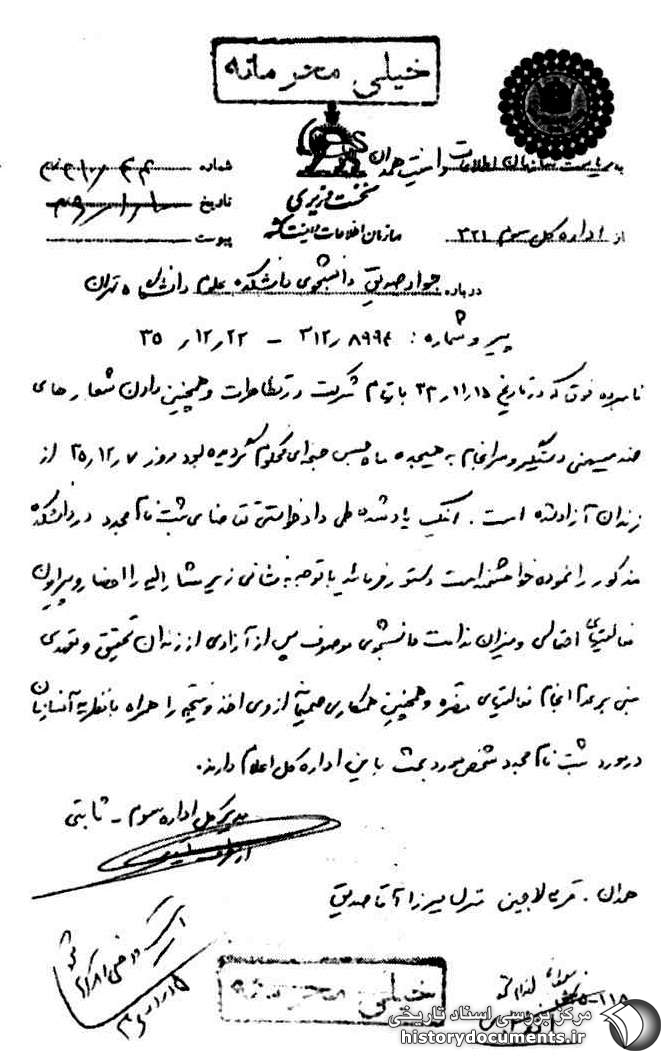 خیلی محرمانه
به ریاست سازمان اطلاعات و امنیت همدان
شماره
نخست وزیری
تاریخ
از اداره کل سوم ۳۲۱
سازمان اطلاعات و امنیت کشور
پیوست
درباره جواد صدیق دانشجوی دانشکده علوم دانشگاه تهران
پیرو شماره: ۳۱۲/۸۹۹۴ - ۲۲/۱۲/۳۵
نامبرده فوق که در تاریخ ۱۵/۱۱/۳۳ باتهام شرکت در تظاهرات و همچنین دادن شعارهای
ضد میهنی دستگیر و سرانجام به هیجده ماه حبس جنحه‌ای محکوم گردیده بود روز ۷/۱۲/۳۵ از
زندان آزاد شده است. اینک یاد شده طی دادخواستی تقاضای ثبت نام مجدد در دانشکده
مذکور را نموده خواهشمند است دستور فرمائید با توجه به نشانی زیر مشارالیه را احضار و پیرامون
فعالیتهای احتمالی و میزان ندامت دانشجوی موصوف پس از آزادی از زندان تحقیق و تعهدی
مبنی بر عدم انجام فعالیتهای مضره و همچنین همکاری صمیمانه از وی اخذ و نتیجه را همراه با نظریه آنسازمان
در مورد ثبت نام مجدد شخص مورد بحث باین اداره کل اعلام دارند.
مدیر کل اداره سوم - ثابتی
از طرف
همدان - قریه لاجین منزل میرزا آقا صدیق
خیلی محرمانه
مرکز بررسی اسناد تاریخی
historydocuments.ir